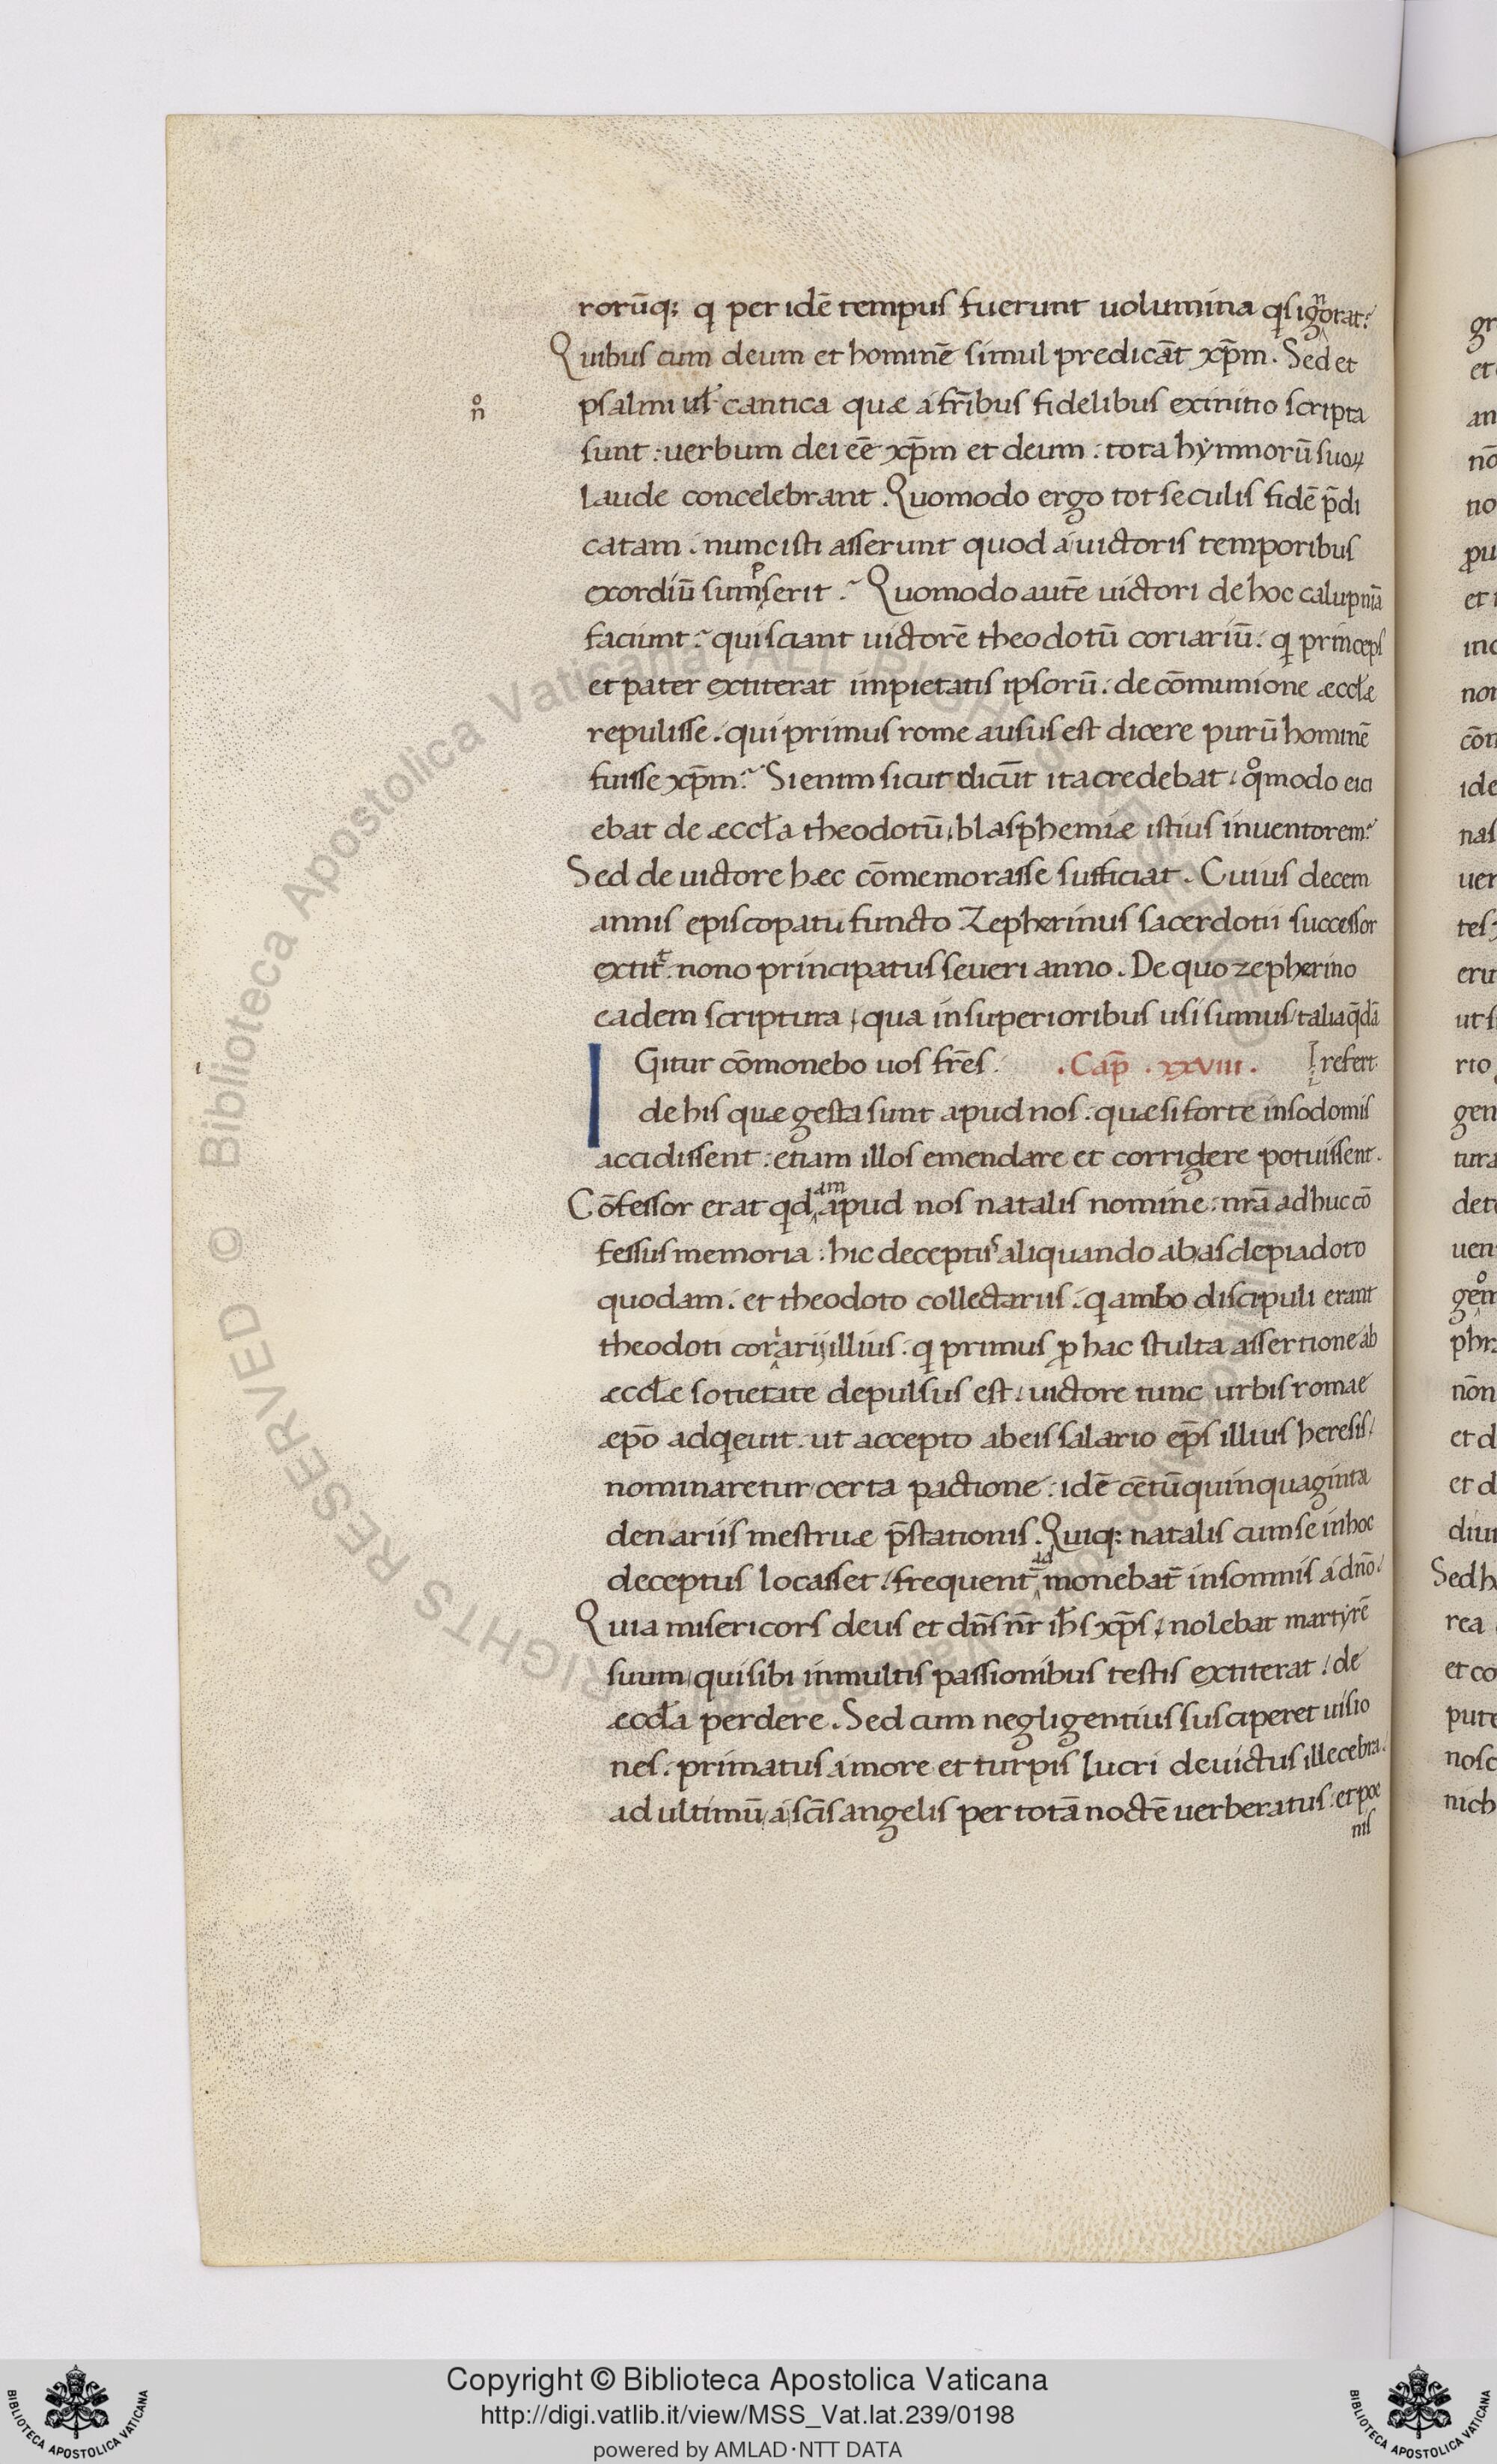 rorūq; q per idē tempus fuerunt uolumina qs ignorat?
Quibus cum deum et hominē simul predicāt xp̄m. Sed et
n̊
psalmi uł cantica quæ á frībus fidelibus ex initio scripta
sunt: uerbum dei eē xp̄m et deum: tota hẏmnorū suoꝝ
laude concelebrant. Quomodo ergo tot seculis fidē p̄di
catam: nunc isti asserunt quod á uictoris temporibus
exordiū sumpserit? Quomodo autē uictori de hoc calupniā
faciunt? qui sciant uictorē theodotū coriariū: q princeps
et pater extiterat impietatis ipsorū: de cōmunione æccłæ
repulisse. qui primus rome ausus est dicere purū hominē
fuisse xp̄m? Si enim sicut dicūt ita credebat: qͦmodo eici
ebat de æccła theodotū, blasphemiæ istius inuentorem?
Sed de uictore hæc cōmemorasse sufficiat. Cuius decem
annis episcopatu functo Zepherinus sacerdotii successor
extit̄: nono principatus seueri anno. De quo zepherino
eadem scriptura, qua in superioribus usi sumus, talia q̄dā
refert.
Igitur cōmonebo uos fr̄es: .Cap̄. xxviii.
de his quæ gesta sunt apud nos: quæ si forte in sodomis
accidissent: etiam illos emendare et corrigere potuissent.
Cōfessor erat qdam apud nos natalis nomine: nrā adhuc cō
fessus memoria: hic deceptus aliquando ab asclepiadoto
quodam: et theodoto collectariis: q ambo discipuli erant
theodoti coriarii illius: q primus ꝓ hac stulta assertione ab
æccłæ sotietate depulsus est: uictore tunc urbis romae
æpō adqeuit: ut accepto ab eis salario ep̄s illius heresis
nominaretur certa pactione: idē cētū quinquaginta
denariis mestruæ p̄stationis. Quiq; natalis cum se in hoc
deceptus locasset: frequent̄ admonebat̄ in somnis á dnō:
Quia misericors deus et dn̄s nr̄ ih̄s xp̄s, nolebat martẏrē
suum, qui sibi in multis passionibus testis extiterat: de
æccła perdere. Sed cum negligentius susciperet uisio
nes: primatus amore et turpis lucri deuictus illecebra:
ad ultimū á scīs angelis per totā noctē uerberatus: et poe
nis
Copyright © Biblioteca Apostolica Vaticana
http://digi.vatlib.it/view/MSS_Vat.lat.239/0198
powered by AMLAD·NTT DATA
BIBLIOTECA APOSTOLICA VATICANA
BIBLIOTECA APOSTOLICA VATICANA